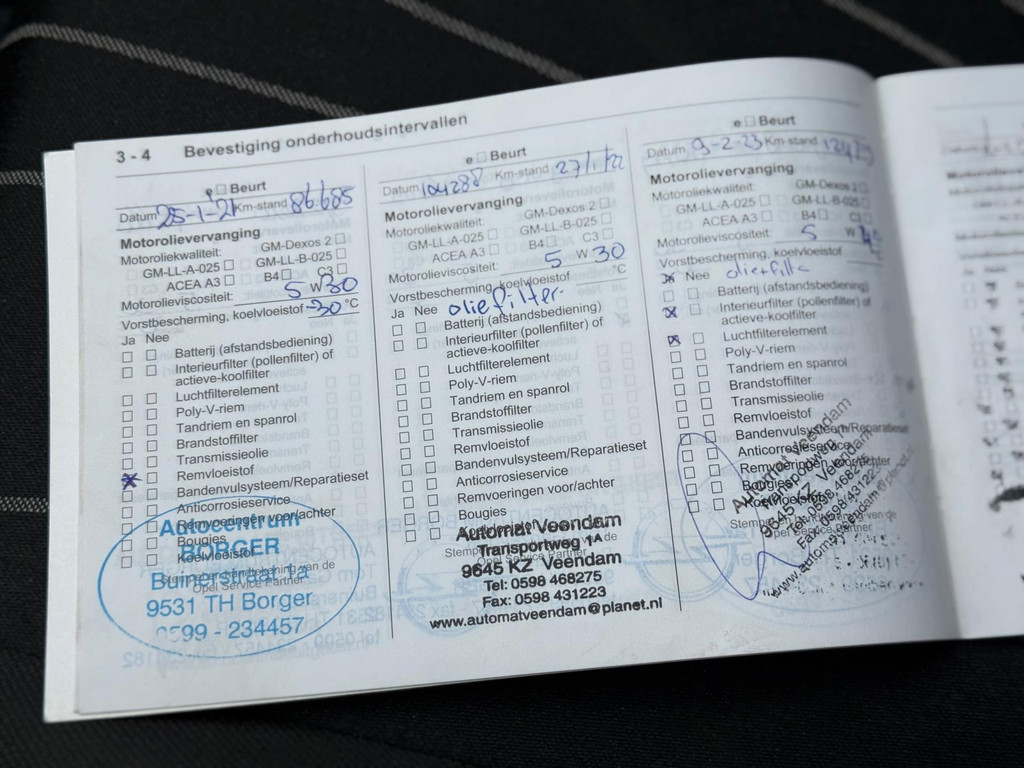 3 - 4 Bevestiging onderhoudsintervallen
e □ Beurt
Datum 25-1-21 Km-stand 86.685
Motorolievervanging
Motoroliekwaliteit: GM-Dexos 2 □
GM-LL-A-025 □ GM-LL-B-025 □
ACEA A3 □ B4 □ C3 □
Motorolieviscositeit: 5 W 30
Vorstbescherming, koelvloeistof -30 °C
Ja Nee
Batterij (afstandsbediening)
Interieurfilter (pollenfilter) of
actieve-koolfilter
Luchtfilterelement
Poly-V-riem
Tandriem en spanrol
Brandstoffilter
Transmissieolie
Remvloeistof
Bandenvulsysteem/Reparatieset
Anticorrosieservice
Remvoeringen voor/achter
Bougies
Koelvloeistof
Autocentrum
BORGER
Buinerstraat 1a
9531 TH Borger
0599 - 234457
e □ Beurt
Datum 104288 Km-stand 27/1/22
Motorolievervanging
Motoroliekwaliteit: GM-Dexos 2 □
GM-LL-A-025 □ GM-LL-B-025 □
ACEA A3 □ B4 □ C3 □
Motorolieviscositeit: 5 W 30
Vorstbescherming, koelvloeistof °C
Ja Nee oliefilter
Batterij (afstandsbediening)
Interieurfilter (pollenfilter) of
actieve-koolfilter
Luchtfilterelement
Poly-V-riem
Tandriem en spanrol
Brandstoffilter
Transmissieolie
Remvloeistof
Bandenvulsysteem/Reparatieset
Anticorrosieservice
Remvoeringen voor/achter
Bougies
Automat Veendam
Transportweg 1A
9645 KZ Veendam
Tel: 0598 468275
Fax: 0598 431223
www.automatveendam@planet.nl
e □ Beurt
Datum 9-2-23 Km-stand
Motorolievervanging
Motoroliekwaliteit: GM-Dexos 2 □
GM-LL-A-025 □ GM-LL-B-025 □
ACEA A3 □ B4 □
Motorolieviscositeit: 5 W
Vorstbescherming, koelvloeistof
Nee oliefilte
Batterij (afstandsbediening)
Interieurfilter (pollenfilter) of
actieve-koolfilter
Luchtfilterelement
Poly-V-riem
Tandriem en spanrol
Brandstoffilter
Transmissieolie
Remvloeistof
Bandenvulsysteem/Reparatieset
Anticorrosieservice
Remvoeringen voor/achter
Bougies
Automat Veendam
Transportweg
9645 KZ Veendam